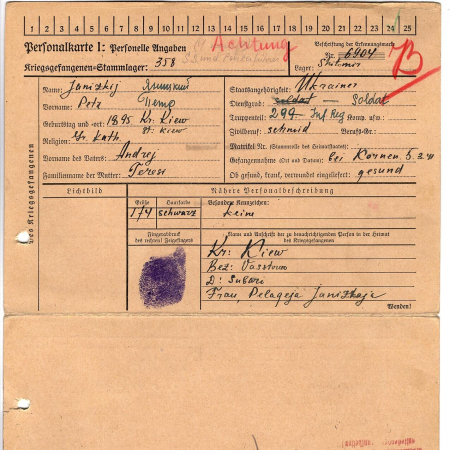 1 2 3 4 5 6 7 8 9 10 11 12 13 14 15 16 17 18 19 20 21 22 23 24 25
Personalkarte I: Personelle Angaben
Achtung
Beschriftung der Erkennungsmarke
Nr. 6904
Kriegsgefangenen-Stammlager: 358
Lager: Shitomir
B
des Kriegsgefangenen
Name: Janizkij Яницкий
Vorname: Petr Петр
Geburtstag und -ort: 1895 Kr. Kiew
st. Kiew
Religion: Gr. Kath.
Vorname des Vaters: Andrej
Familienname der Mutter: Teresi
Staatsangehörigkeit: Ukrainer
Dienstgrad: Soldat — Soldat
Truppenteil: 299 Inf Reg Komp. usw.:
Zivilberuf: schmid Berufs-Gr.:
Matrikel Nr. (Stammrolle des Heimatstaates):
Gefangennahme (Ort und Datum): bei
Ob gesund, krank, verwundet eingeliefert: gesund
Lichtbild
Nähere Personalbeschreibung
Größe Haarfarbe Besondere Kennzeichen:
174 schwarz keine
Fingerabdruck
des rechten! Zeigefingers
Name und Anschrift der zu benachrichtigenden Person in der Heimat
des Kriegsgefangenen
Kr: Kiew
Bez:
D:
Frau, Pelageja Janizkaja
Wenden!